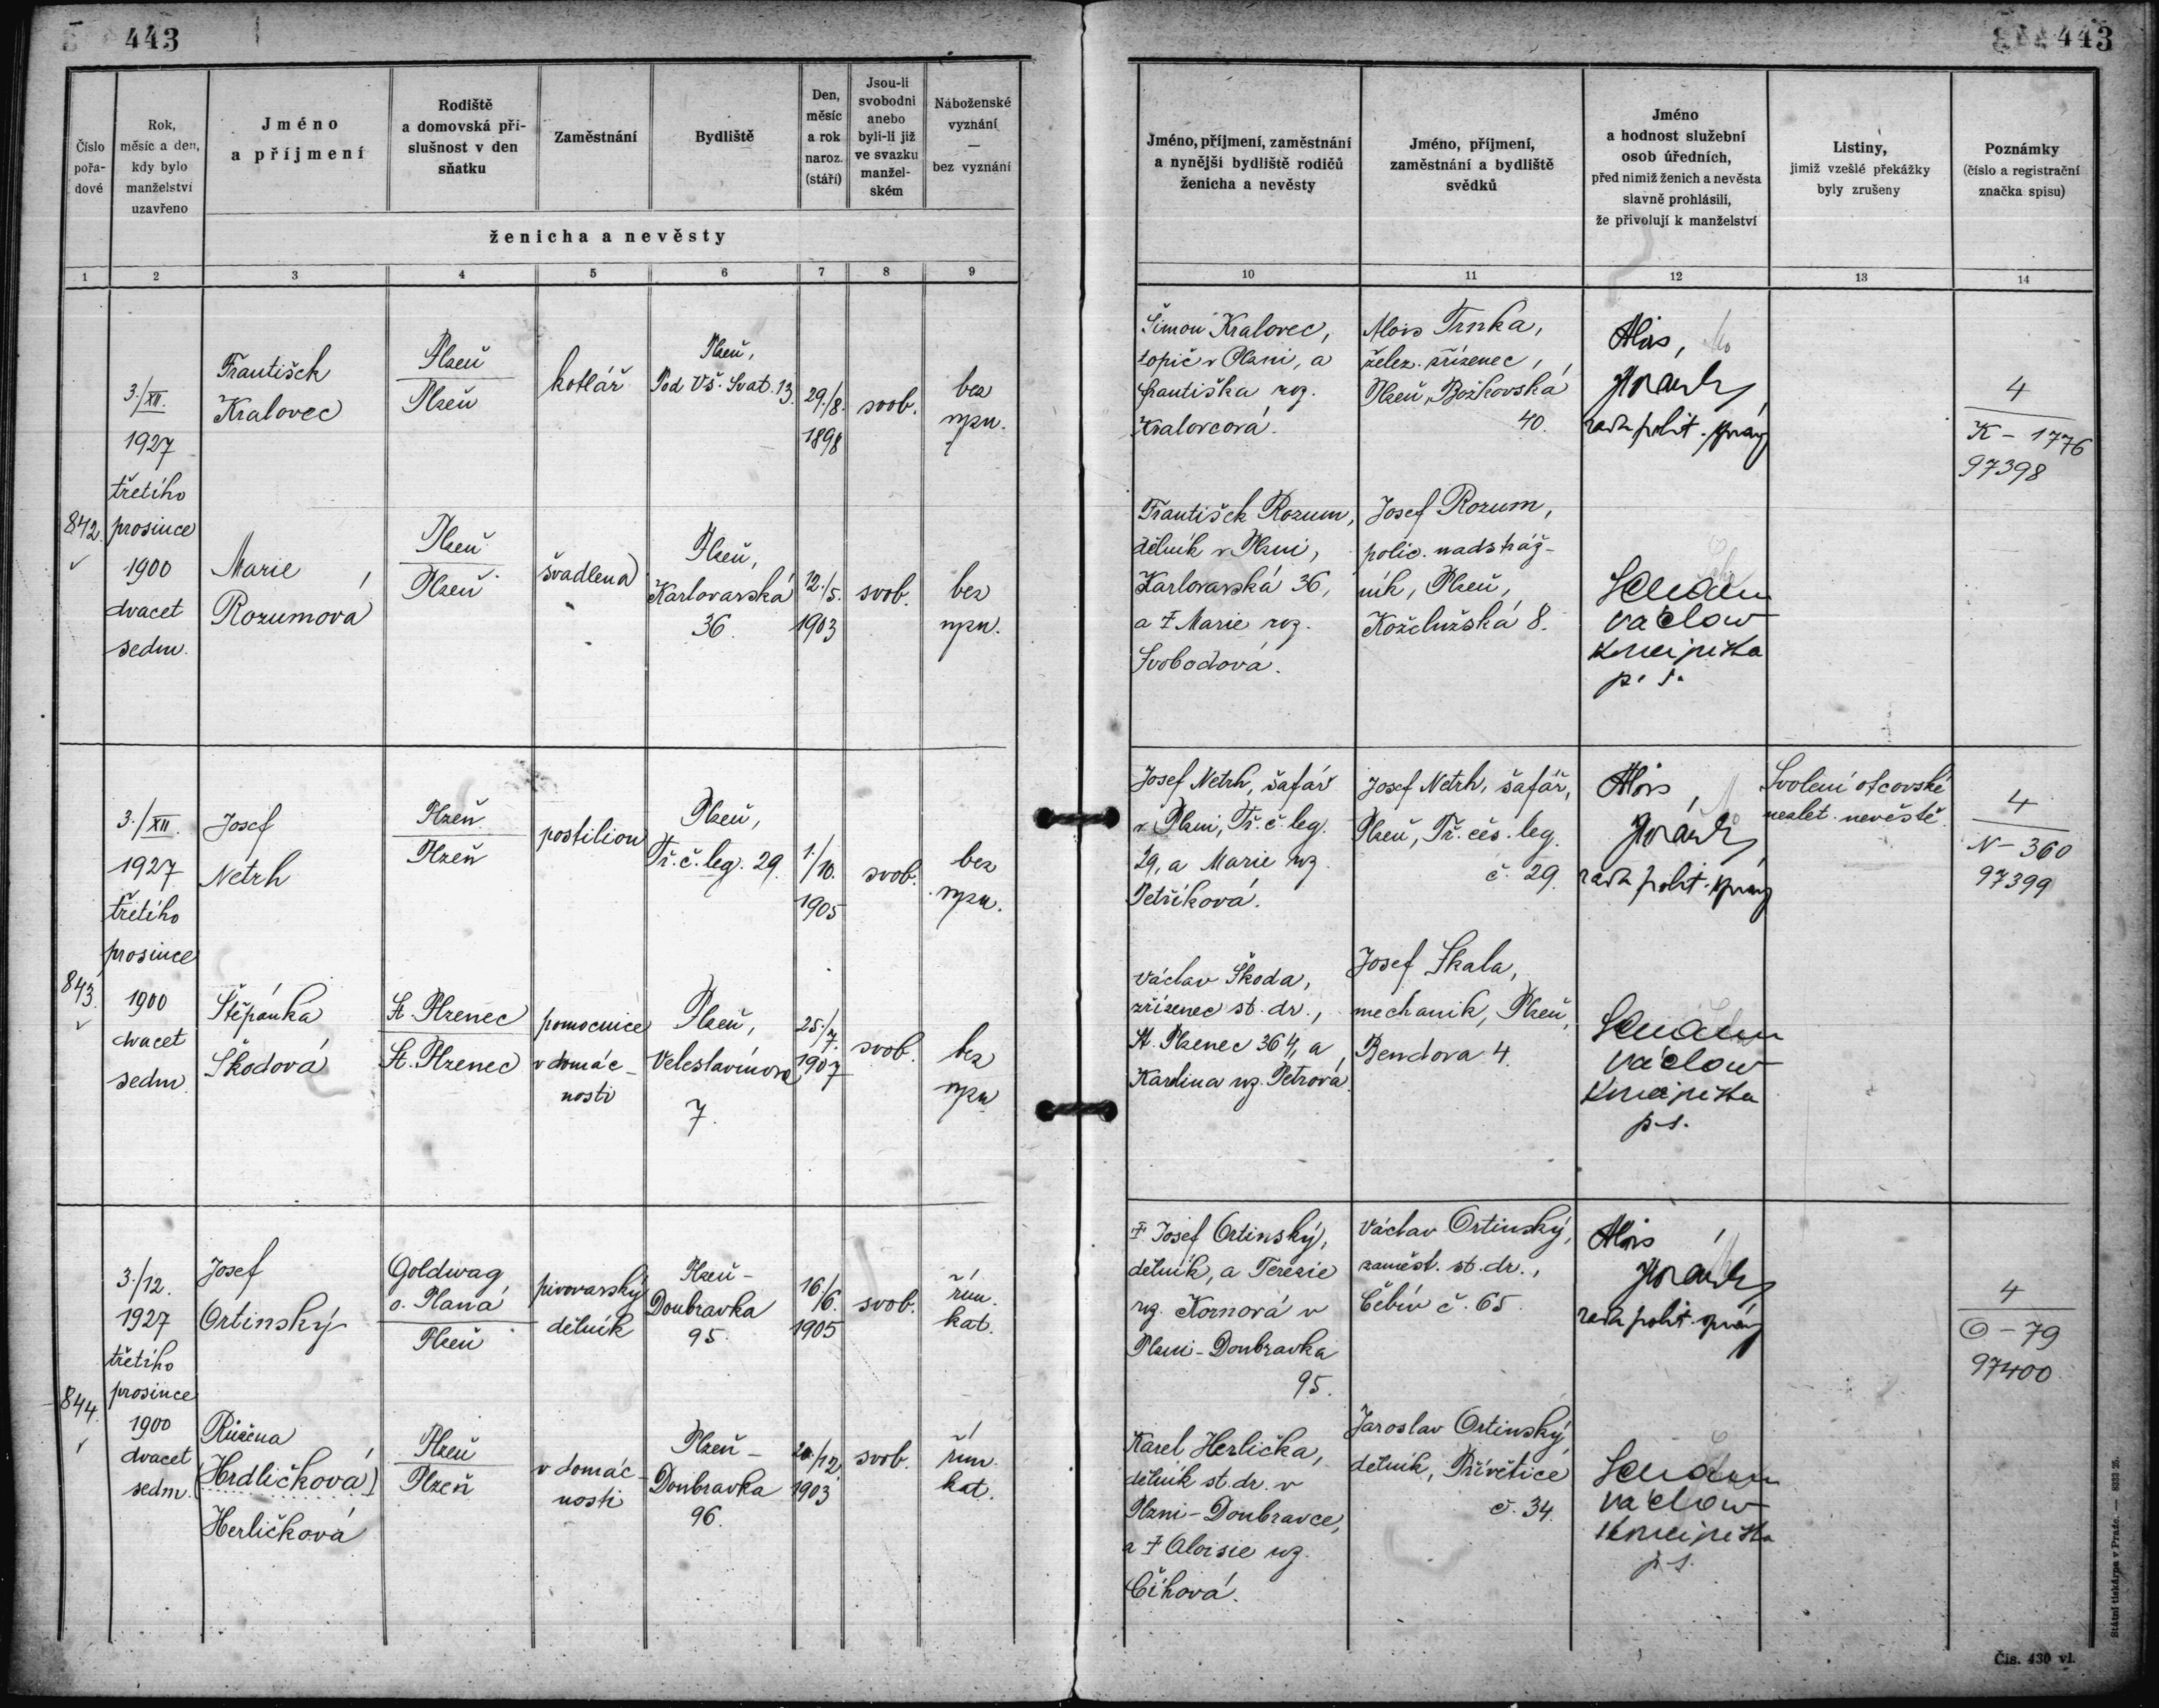 443
443
Číslo pořa-dové
Rok, měsíc a den, kdy bylo manželství uzavřeno
Jméno a příjmení
Rodiště a domovská pří-slušnost v den sňatku
Zaměstnání
Bydliště
Den, měsíc a rok naroz. (stáří)
Jsou-li svobodni anebo byli-li již ve svazku manžel-ském
Náboženské vyznání — bez vyznání
ženicha a nevěsty
Jméno, příjmení, zaměstnání a nynější bydliště rodičů ženicha a nevěsty
Jméno, příjmení, zaměstnání a bydliště svědků
Jméno a hodnost služební osob úředních, před nimiž ženich a nevěsta slavně prohlásili, že přivolují k manželství
Listiny, jimiž vzešlé překážky byly zrušeny
Poznámky (číslo a registrační značka spisu)
1 2 3 4 5 6 7 8 9 10 11 12 13 14
842.
3./XII.
1927
třetího
prosince
1900
dvacet
sedm.
František
Kralovec
Plzeň
Plzeň
kotlář
Plzeň,
Pod Vš. Svat. 13.
29./8.
1898
svob.
bez
vyzn.
Šimon Kralovec,
topič v Plzni, a
Františka roz.
Kralovcová.
Alois Trnka,
želez. zřízenec,
Plzeň, Božkovská
40.
Alois
rada polit. správy
4
K - 1776
97398
Marie
Rozumová
Plzeň
Plzeň
švadlena
Plzeň,
Karlovarská
36.
12./5.
1903
svob.
bez
vyzn.
František Rozum,
dělník v Plzni,
Karlovarská 36,
a Ŧ Marie roz.
Svobodová.
Josef Rozum,
polic. nadstráž-
ník, Plzeň,
Koželužská 8.
Václav
p. s.
843.
3./XII.
1927
třetího
prosince
1900
dvacet
sedm
Josef
Netrh
Plzeň
Plzeň
postilion
Plzeň,
Tř. č. leg. 29.
1./10.
1905
svob.
bez
vyzn.
Josef Netrh, šafář
v Plzni, Tř. č. leg.
29, a Marie roz.
Petříková.
Josef Netrh, šafář,
Plzeň, Tř. čes. leg.
č. 29.
Alois
rada polit. správy
Svolení otcovské
nezlet. nevěstě.
4
N - 360
97399
Štěpánka
Škodová
St. Plzenec
St. Plzenec
pomocnice
v domác-
nosti
Plzeň,
Veleslavínova
7.
25./7.
1907
svob.
bez
vyzn
Václav Škoda,
zřízenec st. dr.,
St. Plzenec 364, a
Karolina roz. Petrová.
Josef Skala,
mechanik, Plzeň,
Bendova 4.
Václav
p. s.
844.
3./12.
1927
třetího
prosince
1900
dvacet
sedm.
Josef
Ortinský
Goldwag,
o. Planá
Plzeň
pivovarský
dělník
Plzeň-
Doubravka
95.
16./6.
1905
svob.
řím.
kat.
Ŧ Josef Ortinský,
dělník, a Terezie
roz. Kornová v
Plzni-Doubravka
95.
Václav Ortinský,
zaměst. st. dr.,
Čebín č. 65.
Alois
rada polit. správy
4
O - 79
97400
Růžena
(Hrdličková)
Herličková
Plzeň
Plzeň
v domác-
nosti
Plzeň-
Doubravka
96.
/12.
1903
svob.
řím.
kat.
Karel Herlička,
dělník st. dr. v
Plzni-Doubravce,
a Ŧ Aloisie roz.
Číhová.
Jaroslav Ortinský,
dělník, Přívětice
č. 34.
Václav
p. s.
Státní tiskárna v Praze. —
Čís. 430 vl.